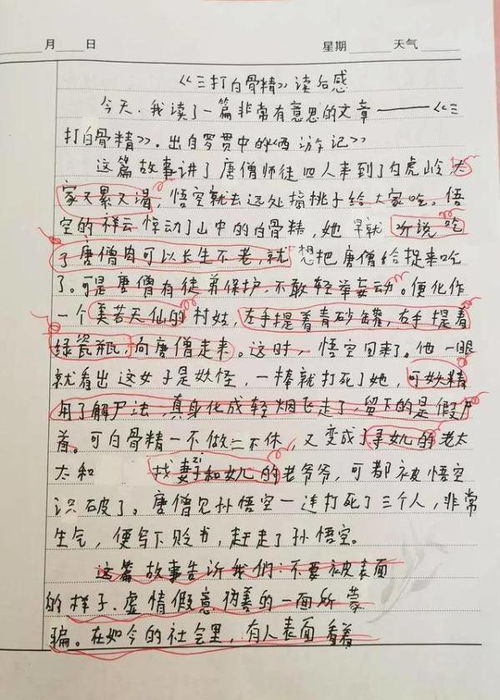 月 日 星期 天气
《三打白骨精》读后感
今天,我读了一篇非常有意思的文章——《三
打白骨精》.出自罗贯中的《西游记》
这篇故事讲了唐僧师徒四人来到了白虎岭,大
家又累又渴,悟空就去远处摘桃子给大家吃。悟
空的祥云惊动了山中的白骨精,她早就听说吃
了唐僧肉可以长生不老,就想把唐僧给捉来吃
了。可是唐僧有徒弟保护,不敢轻举妄动。便化作
一个美若天仙的村姑,左手提着青砂罐,右手提着
绿瓷瓶,向唐僧走来。这时,悟空回来了。他一眼
就看出这女子是妖怪,一棒就打死了她,可妖精
用了解尸法,真身化成轻烟飞走了,留下的是假尸
首。可白骨精一不做二不休,又变成了寻女儿的老太
太和 找妻子和女儿的老爷爷,可都被悟空
zi
识破了。唐僧见孙悟空一连打死了三个人,非常
生气,便写下贬书,赶走了孙悟空。
这篇故事告诉我们:不要被表面
的样子.虚情假意.伪善的一面所蒙
骗。在如今的社会里,有人表面看着